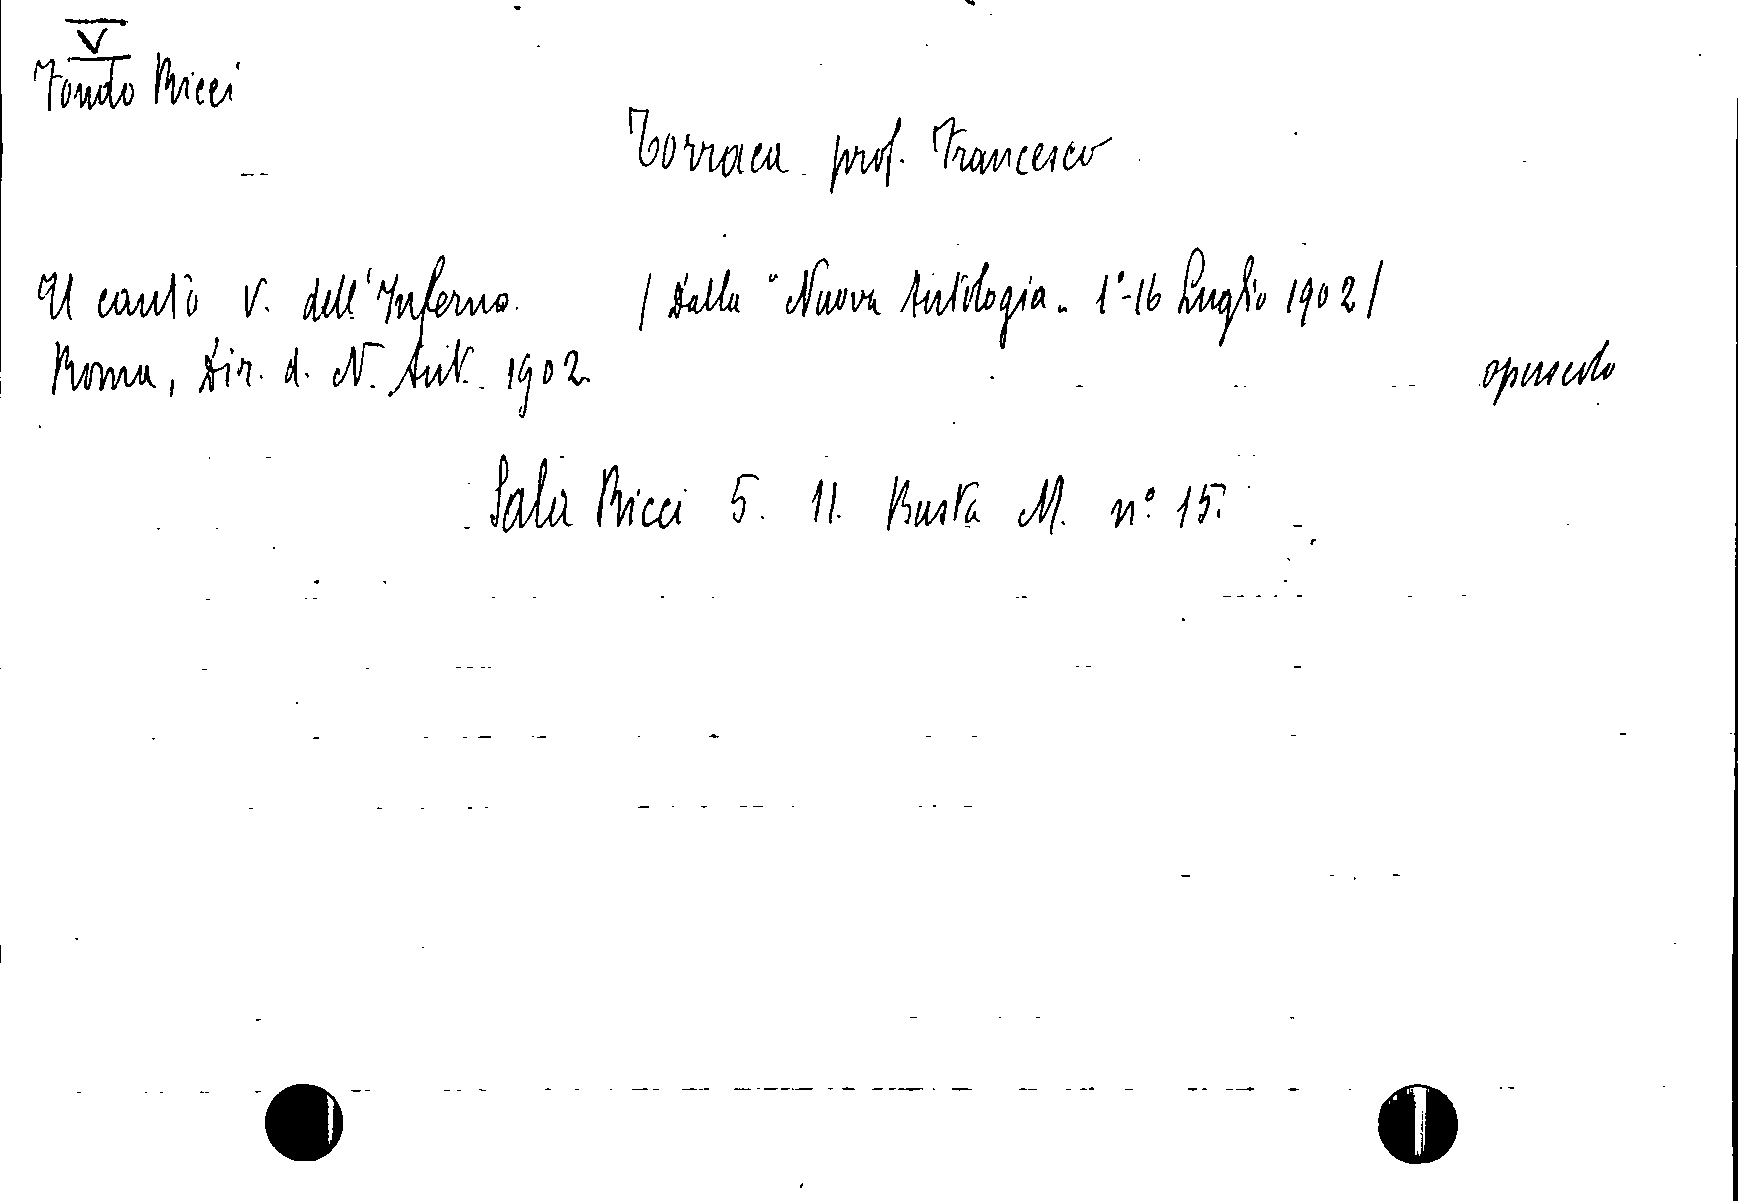 V
Fondo Ricci
Torraca prof. Francesco
Il canto V. dell'Inferno. / Dalla "Nuova Antologia„ 1°-16 Luglio 1902/
Roma, Dir. d. N. Ant. 1902. opuscolo
Sala Ricci 5. 11. Busta M. n° 15.